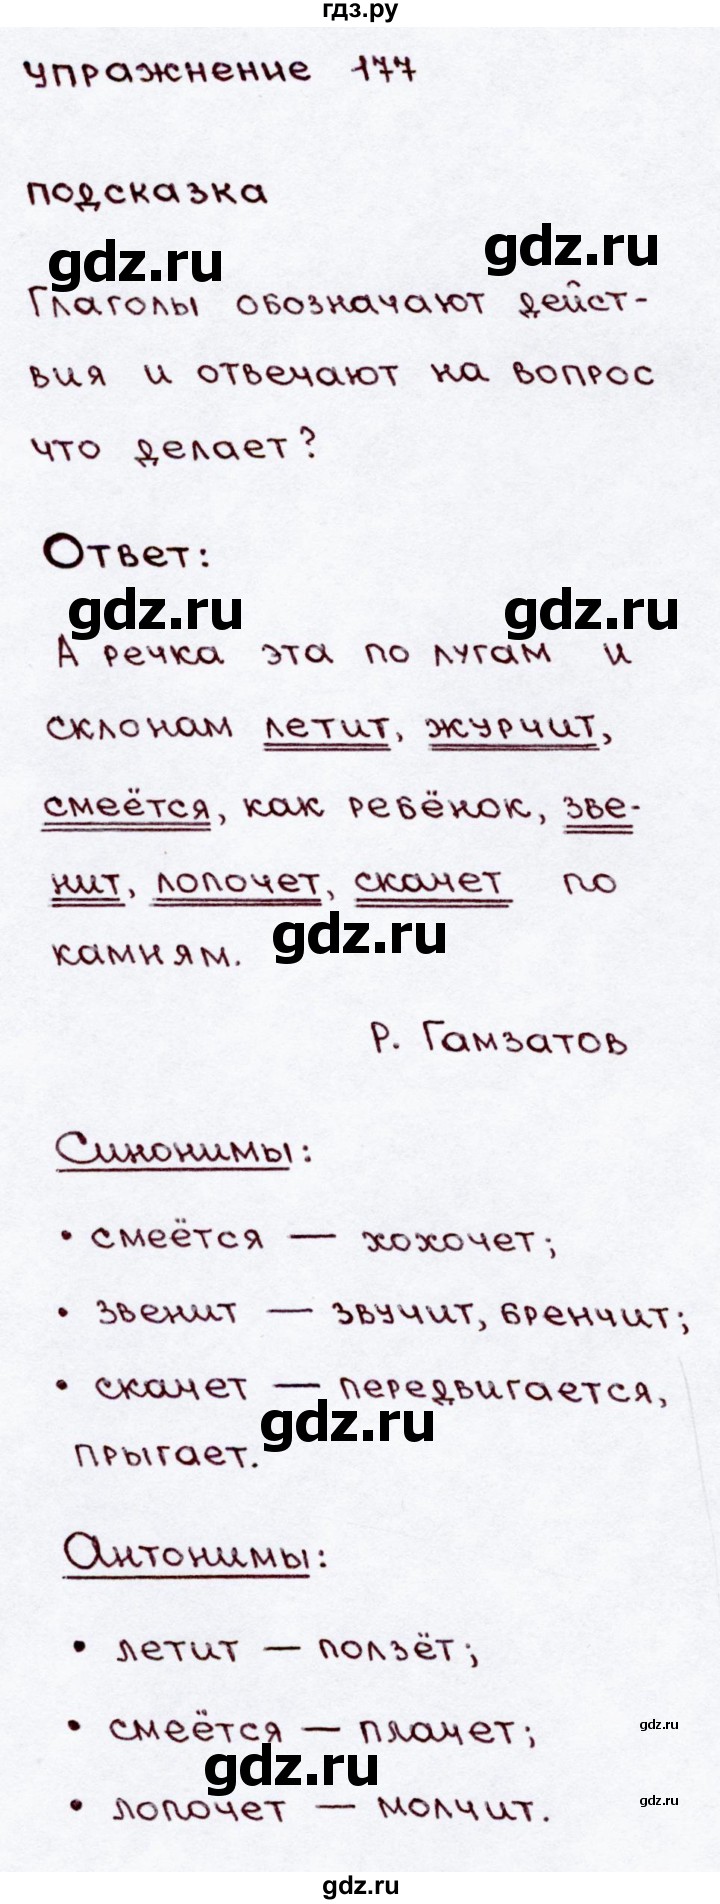 гдз.ру
упражнение 177
подсказка
gdz.ru
gdz.ru
Глаголы обозначают дейст-
вия и отвечают на вопрос
что делает?
Ответ:
gdz.ru
gdz.ru
А речка эта по лугам и
склонам летит, журчит,
смеётся, как ребёнок, зве-
нит, лопочет, скачет по
gdz.ru
камням.
Р. Гамзатов
Синонимы:
• смеётся — хохочет;
• звенит — звучит, бренчит;
• скачет — передвигается,
gdz.ru
прыгает.
Антонимы:
• летит — ползёт;
• смеётся — плачет;
gdz.ru
gdz.ru
• лопочет — молчит.
gdz.ru
gdz.ru